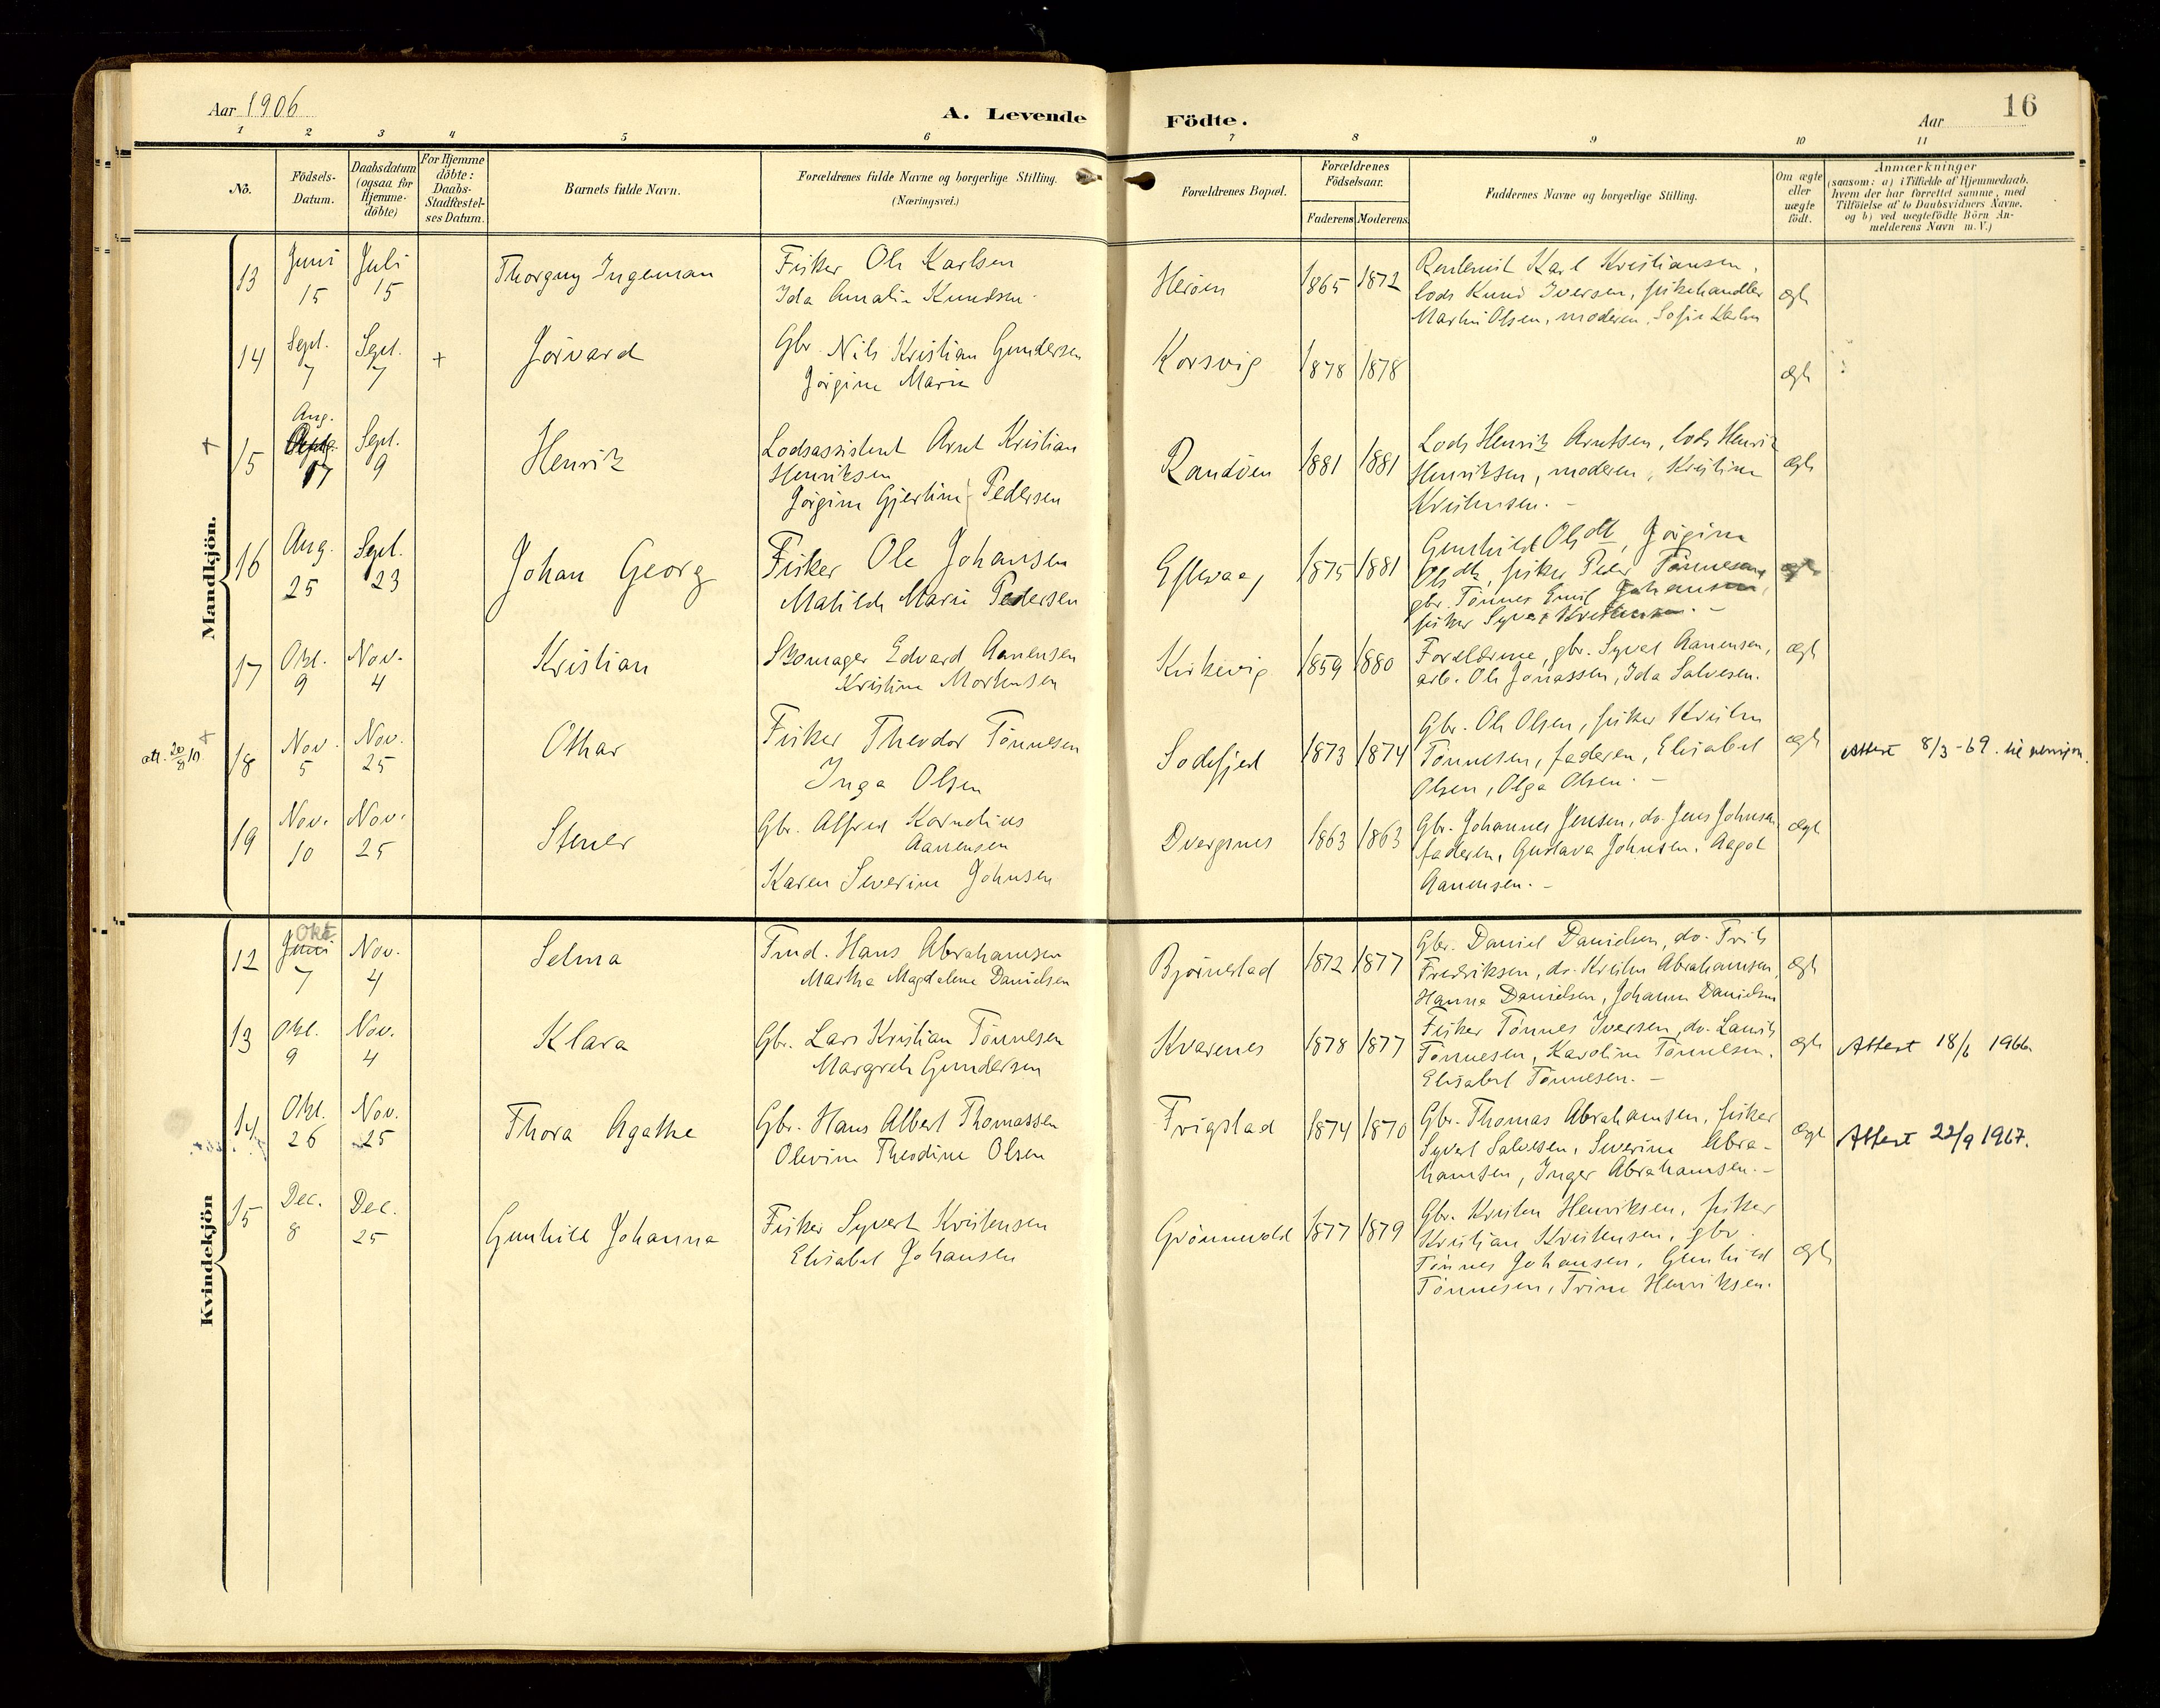 Aar 1906
A. Levende
Födte.
Aar
16
1 2 3 4 5 6 7 8 9 10 11
No.
Födsels-
Datum.
Daabsdatum
(ogsaa for
Hjemme-
döbte)
For Hjemme
döbte:
Daabs-
Stadfæstel-
ses Datum.
Barnets fulde Navn.
Forældrenes fulde Navne og borgerlige Stilling.
(Næringsvei.)
Forældrenes Bopæl.
Forældrenes
Födselsaar.
Faderens Moderens
Faddernes Navne og borgerlige Stilling.
Om ægte
eller
uægte
født.
Anmærkninger
(saasom: a) i Tilfælde af Hjemmedaab.
hvem der har forrettet samme, med
Tilföielse af to Daabsvidners Navne.
og b) ved uægtefödte Börn An-
melderens Navn m.V.)
Mandkjön.
13
Juni
15
Juli
15
Thorguy Ingeman
Fisker Ole Karlsen
Ida Amalie Knudsen
Heröen
1865 1872
Karl Kristiansen,
lods Knud Iversen, fiskehandler
Martin Olsen, moderen, Sofie Karlsen
ægte
14
Sept.
7
Sept.
7
+
Jörvard
Gbr. Nils Kristian Gundersen
Jörgine Marie
Korsvig
1878 1878
ægte
+
15
Aug.
17
Sept.
9
Henrik
Lodsassistent Arnt Kristian
Henriksen
Jörgine Gjertine Pedersen
Randöen
1881 1881
Lods Henrik Arntsen, lods Henrik
Henriksen, moderen, Kristine
Kristensen. -
ægte
16
Aug.
25
Sept.
23
Johan Georg
Fisker Ole Johansen
Matilde Marie Pedersen
Eftevaag
1875 1881
Gunhild Olsdt, Jörgine
Olsdtr, fisker Peder Tönnesen,
gbr. Tönnes Emil Johansen,
fisker Syvert Kristensen. -
ægte
17
Okt.
9
Nov.
4
Kristian
Skomager Edvard Aanensen
Kristine Mortensen
Kirkevig
1859 1880
Forældrene, gbr. Syvert Aanensen,
arb. Ole Jonassen, Ida Salvesen.
ægte
att. 20/8 10
+
18
Nov.
5
Nov.
25
Othar
Fisker Theodor Tönnesen
Inga Olsen
Sodefjed
1873 1874
Gbr. Ole Olsen, fisker Kristen
Tönnesen, faderen, Elisabet
Olsen, Olga Olsen. -
ægte
Attest 8/3-69. til pensjon.
19
Nov.
10
Nov.
25
Stener
Gbr. Alfred Kornelius
Aanensen
Karen Severine Johnsen
Dvergsnes
1863 1863
Gbr. Johannes Jensen, do. Jens Johnsen
faderen, Gustava Johnsen, Aagot
Aanensen. -
ægte
Kvindekjön
12
Juni
Okt
7
Nov.
4
Selma
Tmd. Hans Abrahamsen
Martha Magdalene Danielsen
Björnestad
1872 1877
Gbr. Daniel Danielsen, do. Frits
Fredriksen, do. Kristen Abrahamsen,
Hanna Danielsen, Johanne Danielsen
ægte
13
Okt.
9
Nov.
4
Klara
Gbr. Lars Kristian Tönnesen
Margrete Gundersen
Kvarenes
1878 1877
Fisker Tönnes Iversen, do. Laurits
Tönnesen, Karoline Tönnesen.
Elisabet Tönnesen. -
ægte
Attest 18/6 1966.
14
Okt.
26
Nov.
25
Thora Agathe
Gbr. Hans Albert Thomassen
Olevine Theodine Olsen
Frigstad
1874 1870
Gbr. Thomas Abrahamsen, fisker
Syvert Salvesen, Severine Abra-
hamsen, Inger Abrahamsen. -
ægte
Attest 22/9 1967.
15
Dec.
8
Dec.
25
Gunhild Johanna
Fisker Syvert Kristensen
Elisabet Johansen
Grönnevold
1877 1879
Gbr. Kristen Henriksen, fisker
Kristian Kristensen, gbr.
Tönnes Johansen, Gunhild
Tönnesen, Trine Henriksen.
ægte